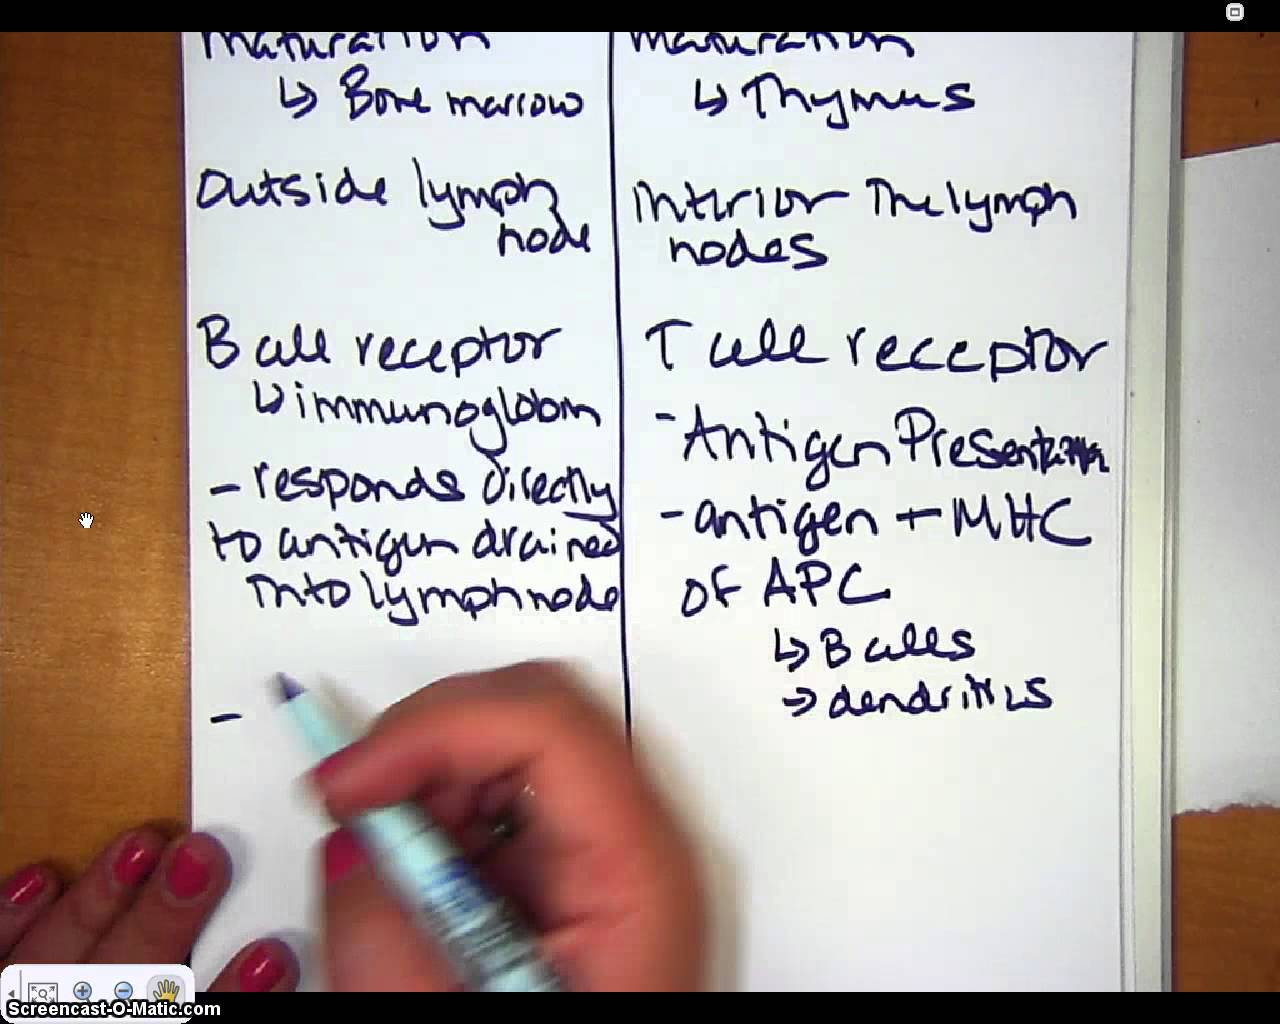 maturation
↳ Bone marrow
Outside lymph
node
B cell receptor
↳ immunoglobin
- responds directly
to antigen drained
into lymph node
-
maturation
↳ Thymus
Interior The lymph
nodes
T cell receptor
- Antigen Presentation
- antigen + MHC
of APC
↳ B cells
→ dendritics
Screencast-O-Matic.com